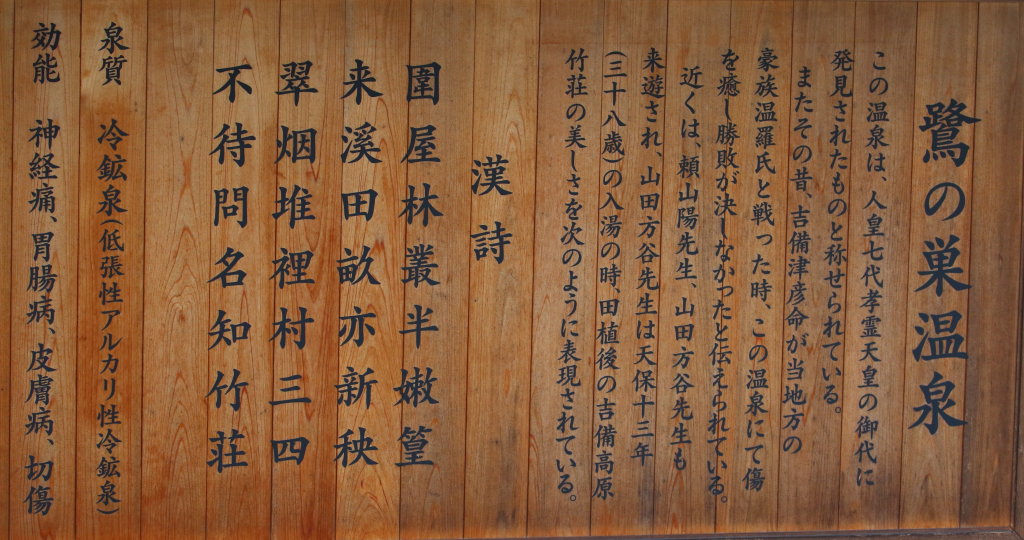 鷺の巣温泉
この温泉は、人皇七代孝霊天皇の御代に
発見されたものと称せられている。
またその昔、吉備津彦命が当地方の
豪族温羅氏と戦った時、この温泉にて傷
を癒し勝敗が決しなかったと伝えられている。
近くは、頼山陽先生、山田方谷先生も
来遊され、山田方谷先生は天保十三年
(三十八歳)の入湯の時、田植後の吉備高原
竹荘の美しさを次のように表現されている。
漢詩
圍屋林叢半嫩篁
来溪田畝亦新秧
翠烟堆裡村三四
不待問名知竹荘
泉質 冷鉱泉(低張性アルカリ性冷鉱泉)
効能 神経痛、胃腸病、皮膚病、切傷